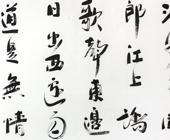 郎江上踏
歌聲東邊
日出西邊雨
道是無情